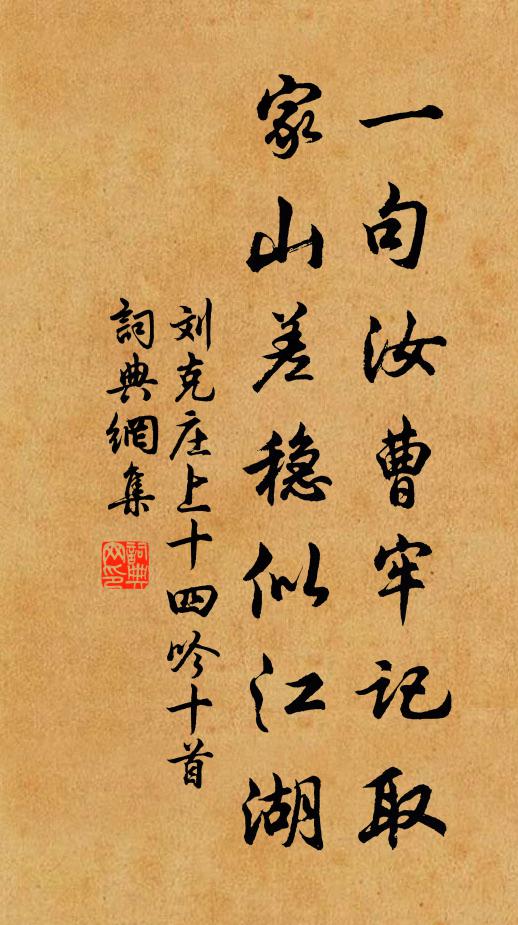 一句汝曹牢记取
家山差稳似江湖
刘克庄上十四吟十首
詞典網集
詞典网印